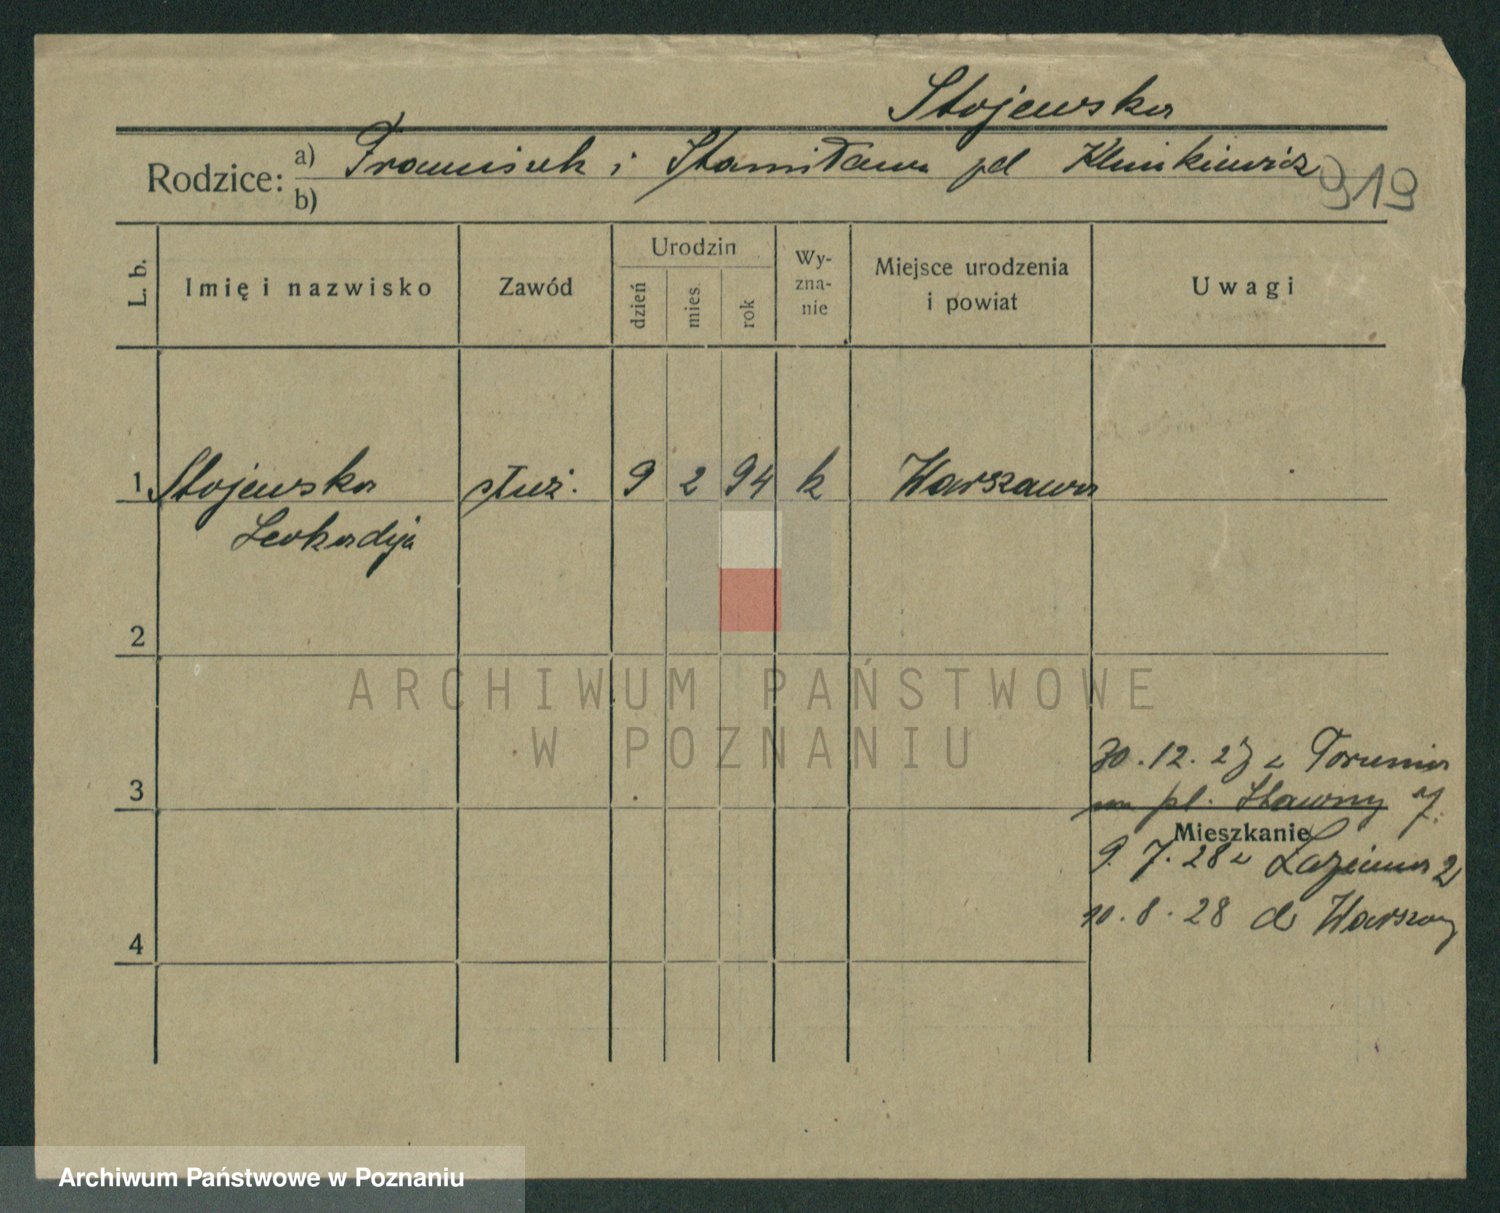 Stojewska
Rodzice: a) Franciszek i Stanisława pd Klimkiewicz
b)
919
L. b.
Imię i nazwisko
Zawód
Urodzin
dzień
mies.
rok
Wy-
zna-
nie
Miejsce urodzenia
i powiat
Uwagi
1 Stojewska służ. 9 2 94 k Warszawa
Leokadija
2
ARCHIWUM PAŃSTWOWE
W POZNANIU
30.12.27 z Torunia
na pl. Sławny 7.
3
Mieszkanie
9.7.28 z Łazienna 2
10.8.28 do Warszawy
4
Archiwum Państwowe w Poznaniu